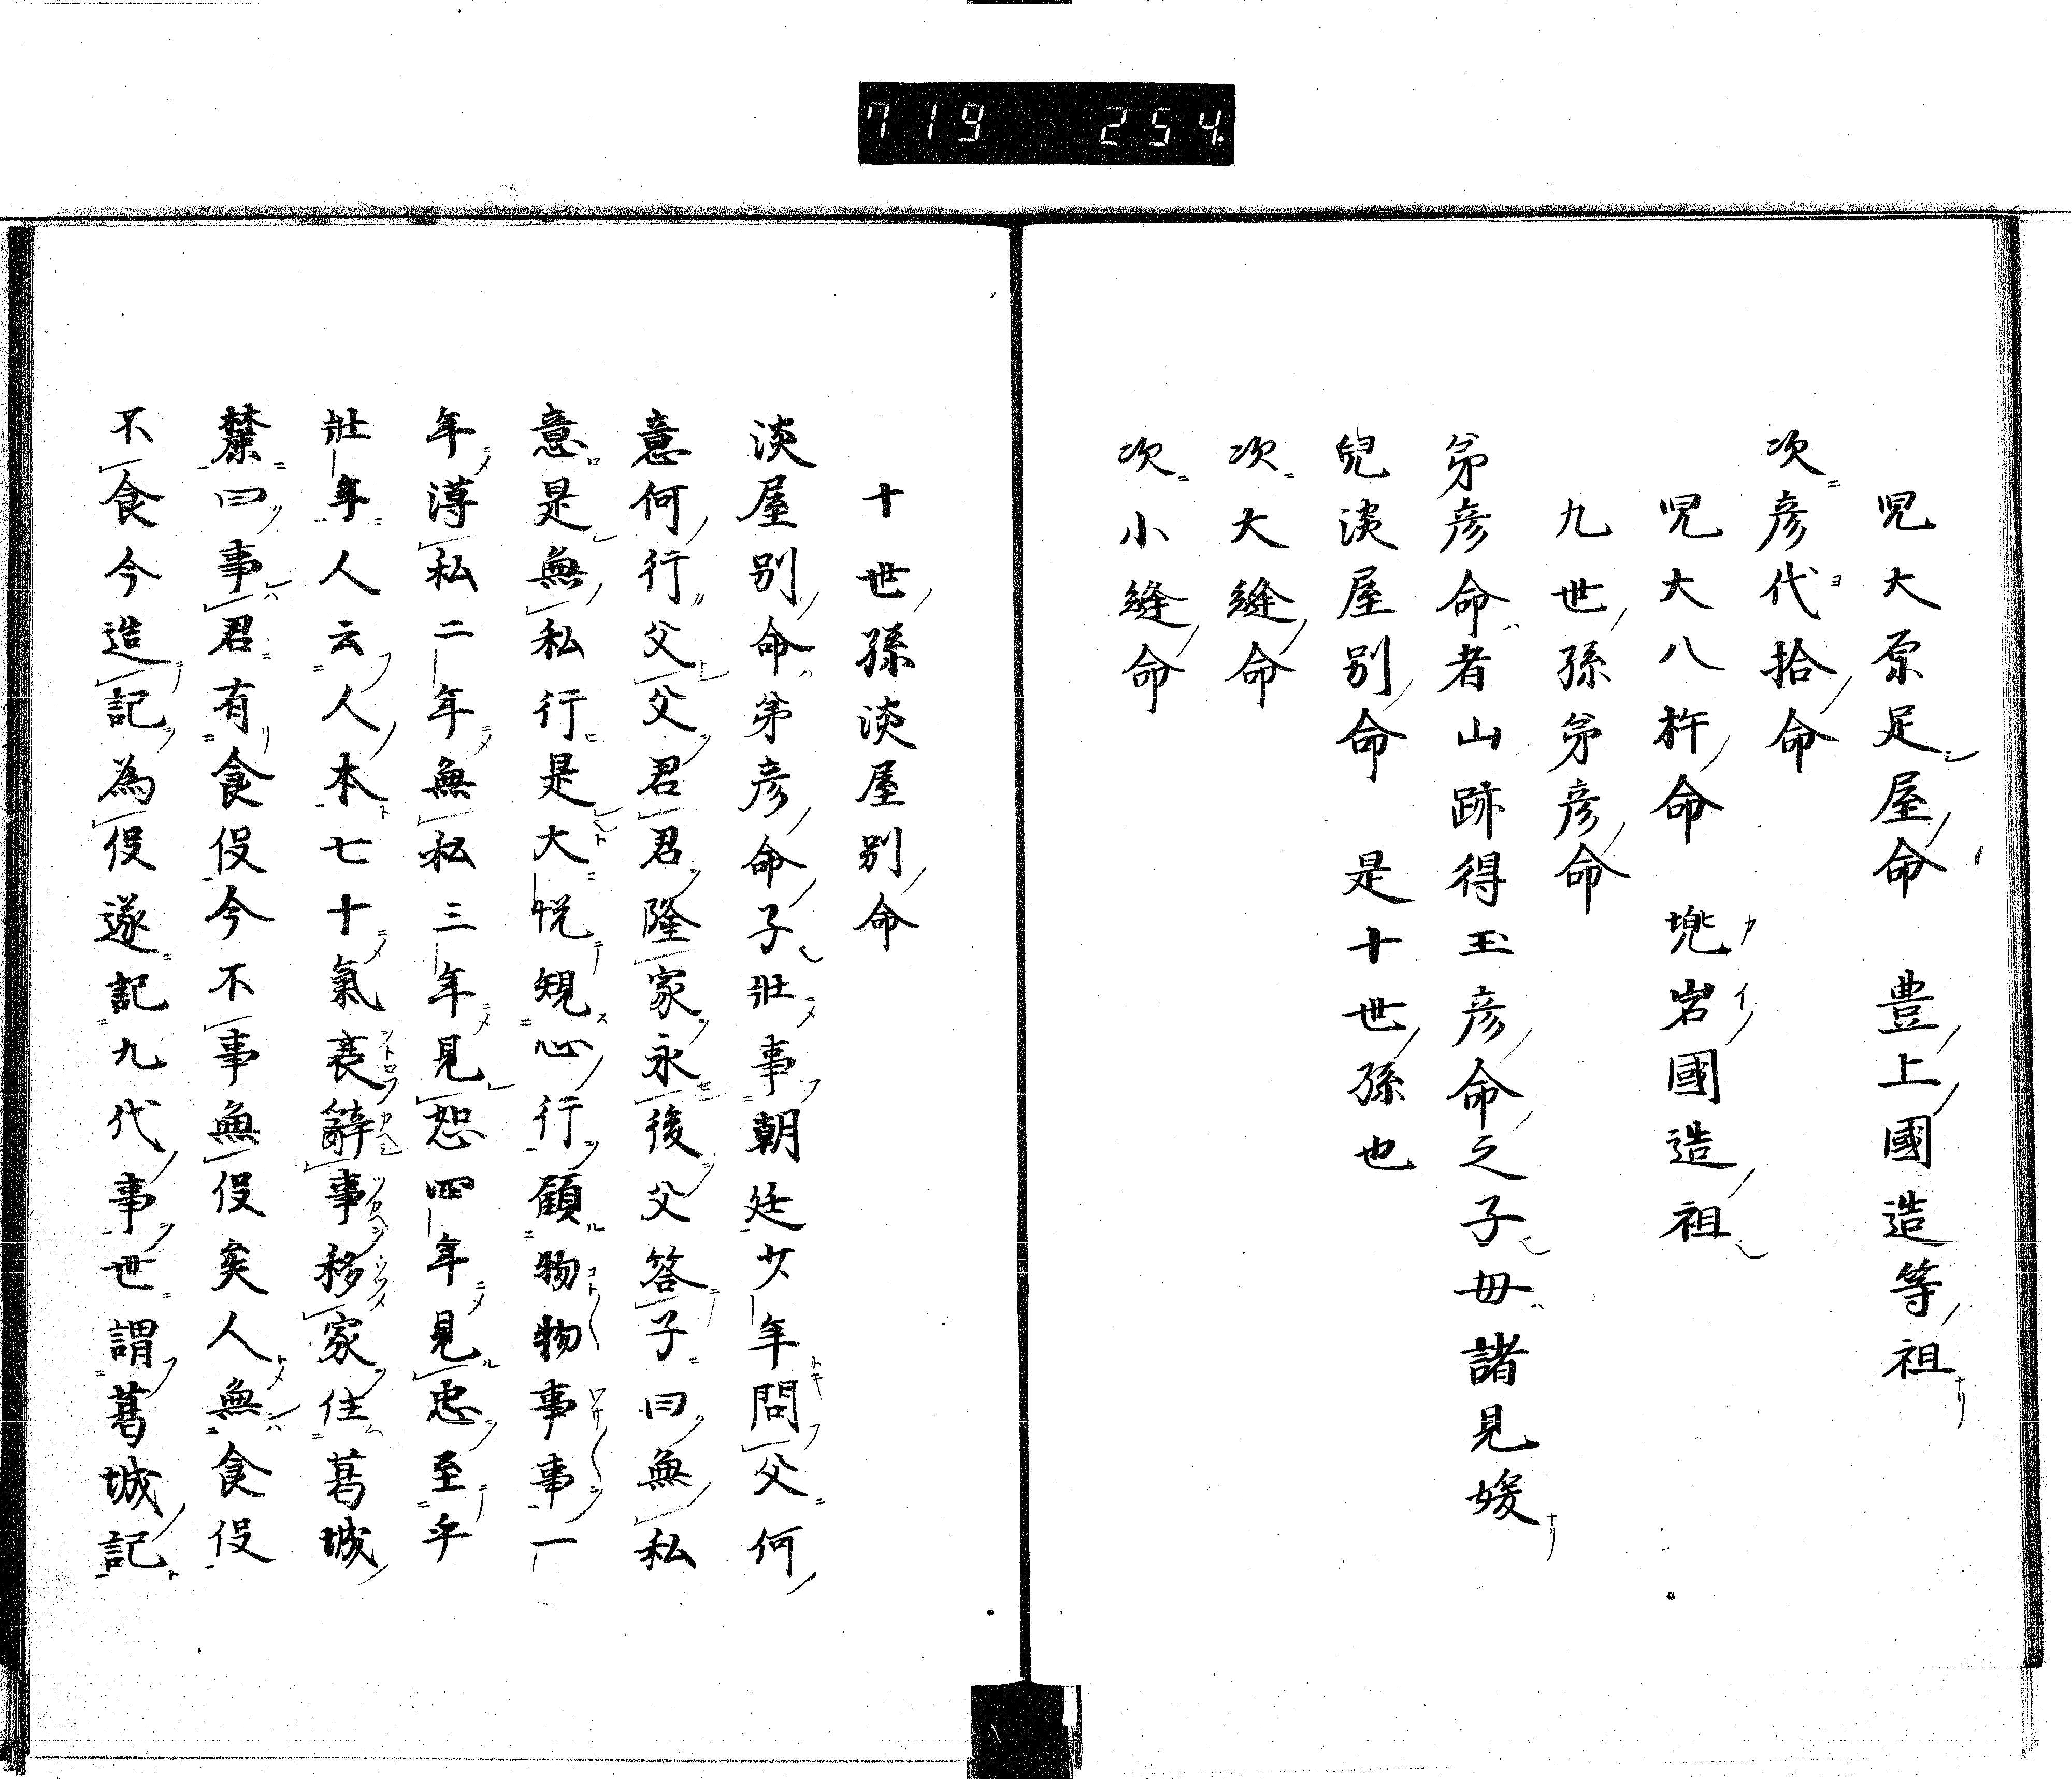 719 254.
児大原足屋命 豊上國造等祖
次彦代拾命
児大八杵命 兠岩國造祖
九世孫弟彦命
弟彦命者山跡得玉彦命之子毋諸見媛
兒淡屋別命 是十世孫也
次大縫命
次小縫命
十世孫淡屋別命
淡屋別命弟彦命子壯事朝廷少年問父何
意何行父父君君隆家永後父答子曰無私
意是無私行是大悦規心行顧物物事事一
年溥私二年無私三年見恕四年見忠至乎
壯年人云人本七十氣衰辭事移家住葛城
禁曰事君有食伇今不事無伇矣人無食伇
不食今造記為伇遂記九代事世謂葛城記